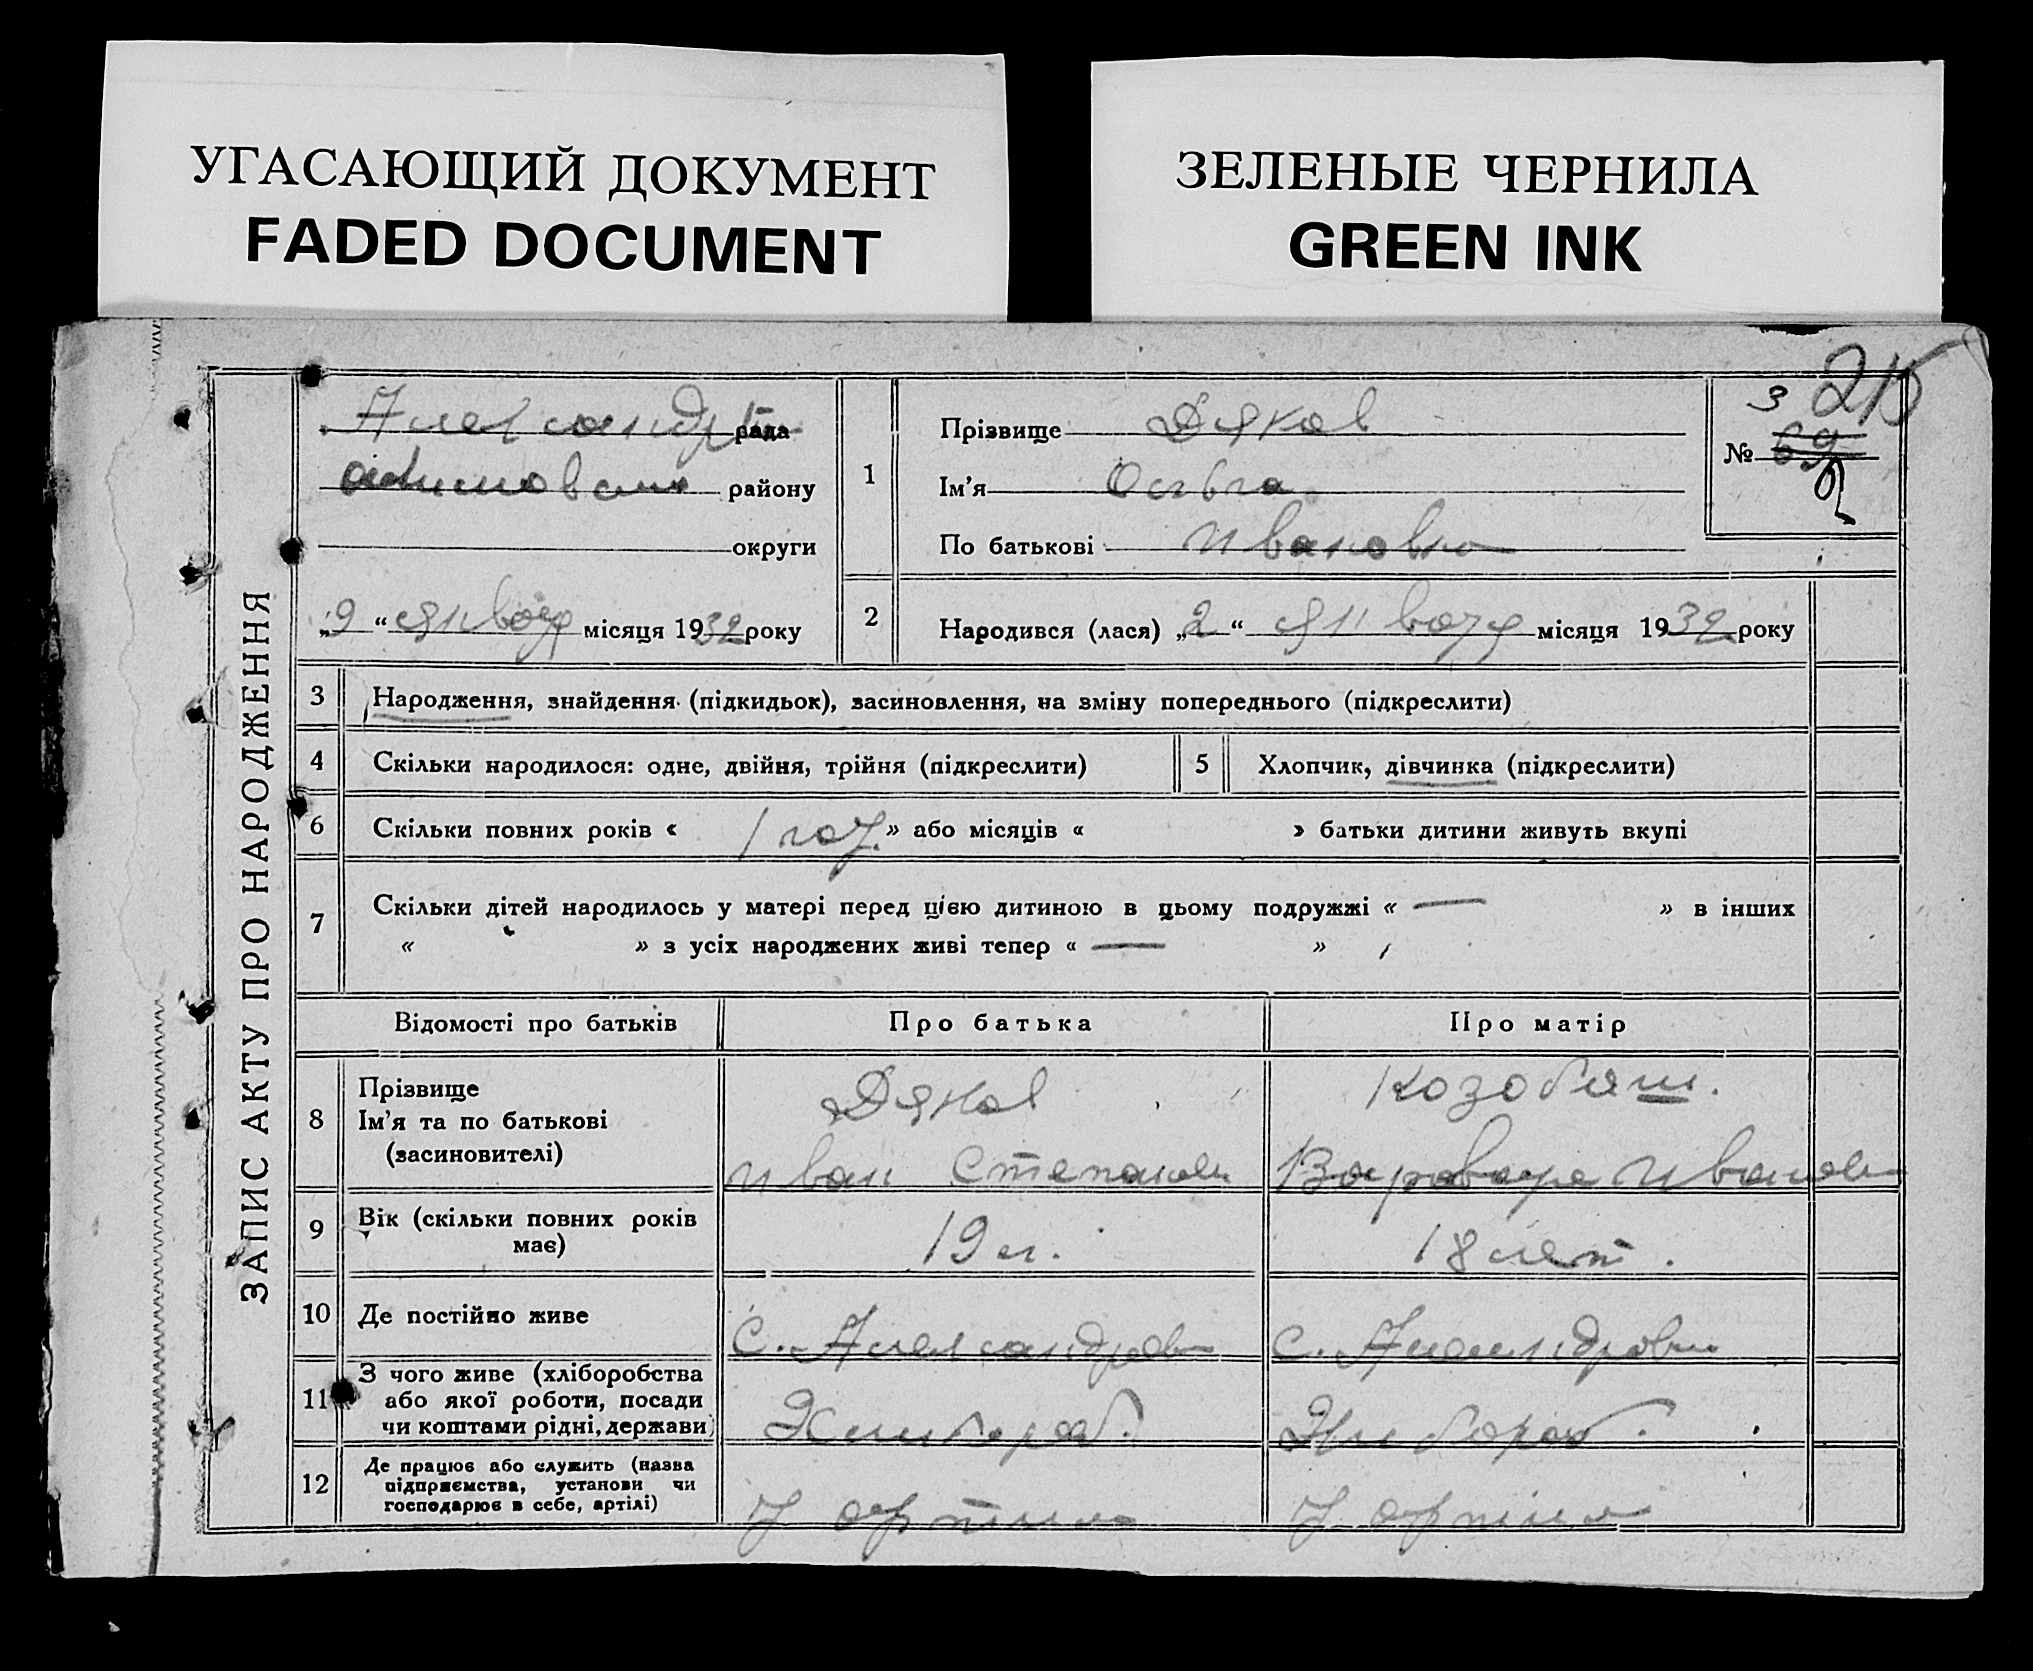 УГАСАЮЩИЙ ДОКУМЕНТ
FADED DOCUMENT
ЗЕЛЕНЫЕ ЧЕРНИЛА
GREEN INK
215
ЗАПИС АКТУ ПРО НАРОДЖЕННЯ
рада
району
округи
„9“ января місяця 1932 року
1
Прізвище Дяков
Ім'я Ольга
По батькові Ивановна
3
№ 69
2
Народився (лася) „2“ января місяця 1932 року
3 Народження, знайдення (підкидьок), засиновлення, на зміну попереднього (підкреслити)
4 Скільки народилося: одне, двійня, трійня (підкреслити)
5 Хлопчик, дівчинка (підкреслити)
6 Скільки повних років « 1 год. » або місяців « » батьки дитини живуть вкупі
7 Скільки дітей народилось у матері перед цією дитиною в цьому подружжі « — » в інших
« » з усіх народжених живі тепер « — »
Відомості про батьків
Про батька
Про матір
8 Прізвище
Ім'я та по батькові
(засиновителі)
Дяков
Иван Степанов
Козобяш.
Варвара Иванов
9 Вік (скільки повних років
має)
19 л.
18 лет.
10 Де постійно живе
с. Александров
с. Александров
11 З чого живе (хліборобства
або якої роботи, посади
чи коштами рідні, держави)
Хлибороб.
Хлибороб.
12 Де працює або служить (назва
підприємства, установи чи
господарює в себе, артілі)
У артили
У артили